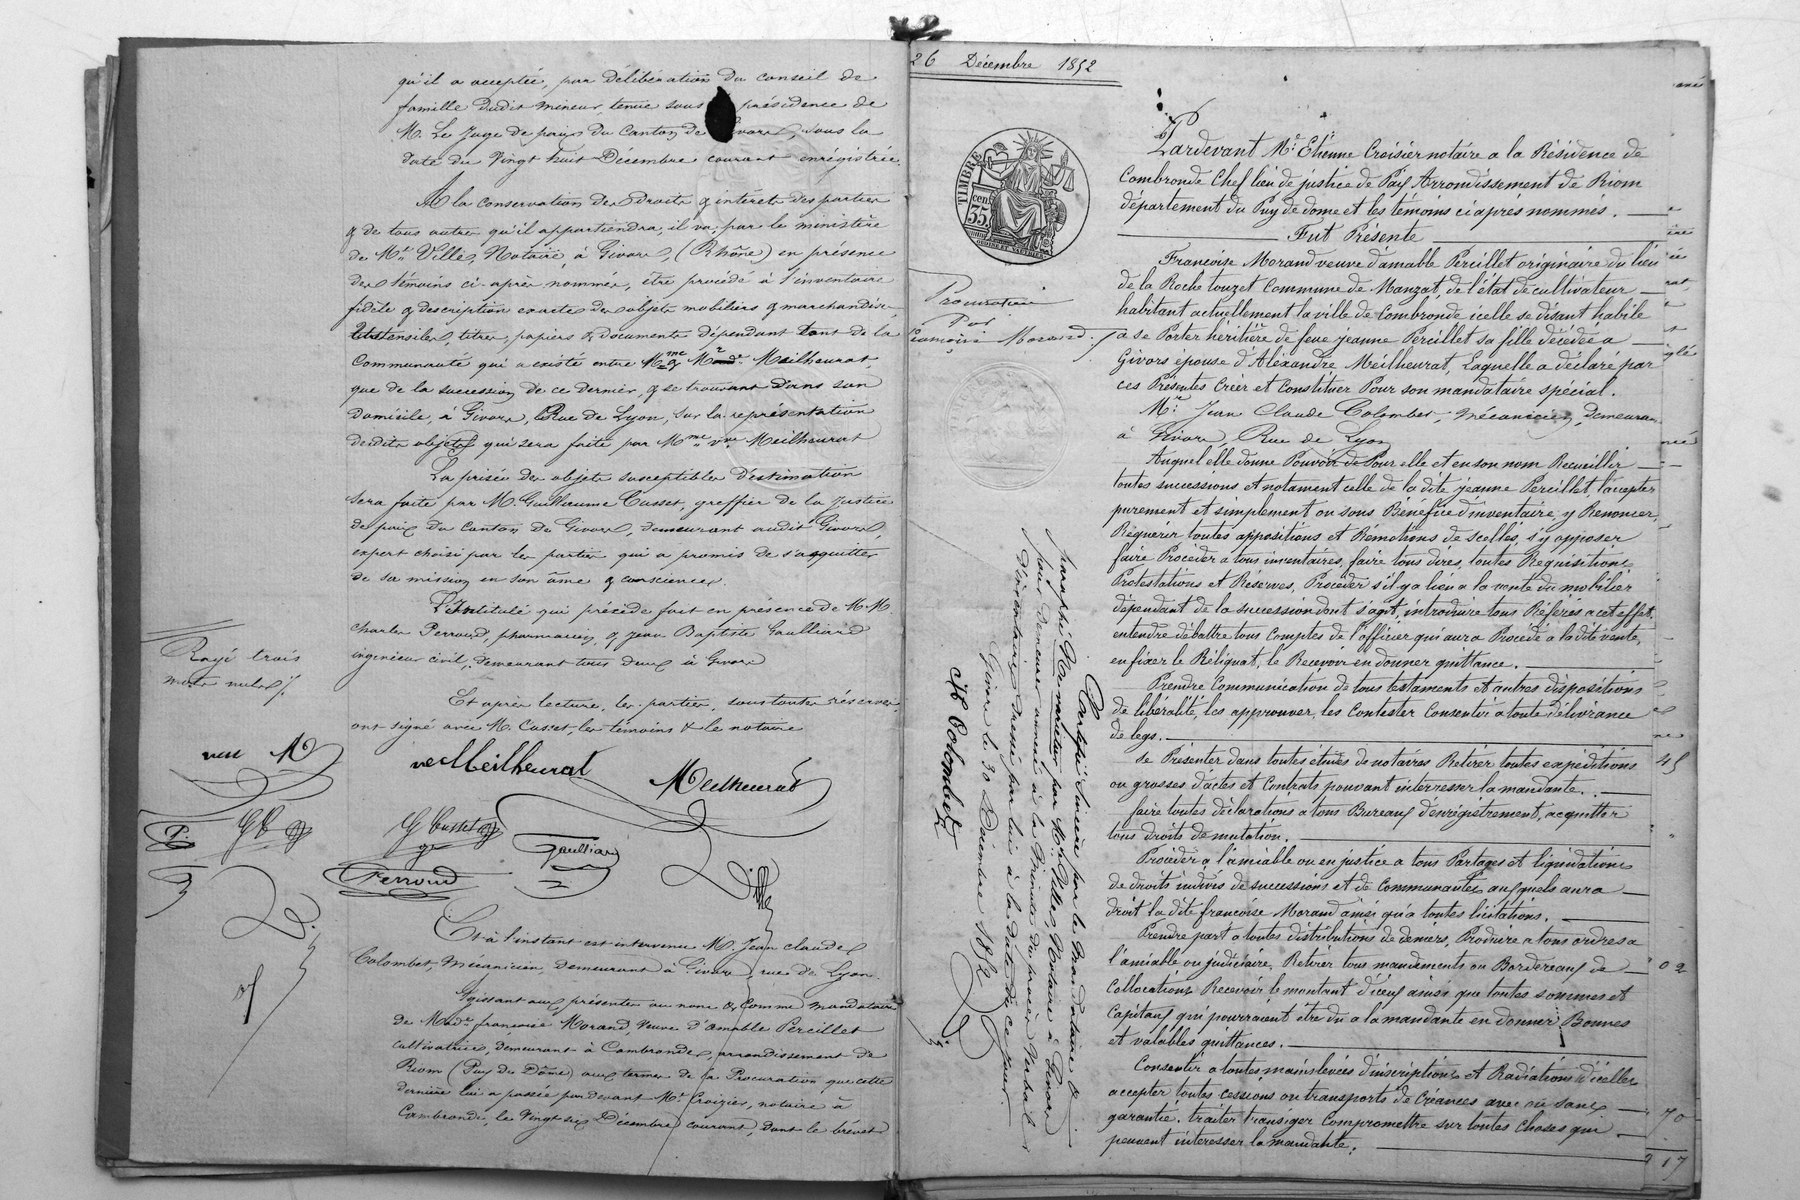 qu'il a acceptée, par délibération du conseil de
famille dudit mineur, tenue sous présidence de
M. Le Juge de paix du Canton de Givors, sous la
date du Vingt huit Décembre courant enregistrée.
A la conservation des Droits & intérêts des parties
& de tous autres qu'il appartiendra, il va, par le ministère
de Me. Ville, Notaire, à Givors, (Rhône) en présence
des témoins ci-après nommés, être procédé à l'inventaire
fidèle & description exacte des objets mobiliers & marchandises,
Ustensiles, titres, papiers & documents dépendant tant de la
Communauté qui a existé entre Mme & Mr Meilheurat,
que de la succession de ce dernier, & se trouvant dans son
domicile, à Givors, Rue de Lyon, sur la représentation
desdits objets qui sera faite par Mme. vve. Meilheurat
La prisée des objets susceptibles d'estimation
sera faite par M. Guillaume Cusset, greffier de la justice
de paix du Canton de Givors, demeurant audit Givors,
expert choisi par les parties qui a promis de s'acquitter
de sa mission en son âme & conscience.
L'Intitulé qui précède fait en présence de M.M.
Charles Perroud, pharmacien, & Jean Baptiste Gaulliard
ingénieur civil, demeurant tous deux à Givors
Et après lecture, les parties, sous toutes réserves,
ont signé avec M. Cusset, les témoins & le notaire
Rayé trois
mots nuls
vve M
ve Meilheurat
Meilheurat
GC
G Cusset
gr
Gaulliard
P.
Perroud
Ville
Et à l'instant est intervenu M. Jean Claude
Colombet, Mécanicien, demeurant à Givors, rue de Lyon.
Agissant aux présentes au nom & comme mandataire
de Made. françoise Morand, Veuve d'amable Percillet
cultivatrice, demeurant à Combronde, arrondissement de
Riom (Puy de Dôme) aux termes de la Procuration que cette
dernière lui a passée pardevant Me. Croizier, notaire à
Combronde, le Vingt six Décembre courant, dont le brevet
26 Décembre 1852
TIMBRE
35 cen.
Procuration
Par
françoise Morand.
Pardevant Me. Etienne Croisier notaire a la Résidence de
Combronde Chef lieu de justice de Paix Arrondissement de Riom
département du Puy de dome et les témoins ci après nommés.
Fut Présente
Francoise Morand veuve d'amable Percillet originaire du lieu
de la Roche touzet Commune de Manzat, de l'état de cultivateur
habitant actuellement la ville de Combronde icelle se disant habile
a se Porter héritière de feue jeanne Percillet sa fille décédée a
Givors épouse d'Alexandre Meilheurat, Laquelle a déclaré par
ces Présentes Créer et Constituer Pour son mandataire spécial.
Mr. Jean Claude Colombet, mécanicien, demeurant
à Givors, Rue de Lyon
Auquel elle donne Pouvoir de Pour elle et en son nom Recueillir
toutes successions et notament celle de la dite jeanne Percillet, l'accepter
purement et simplement ou sous Bénéfice d'inventaire, y Renoncer,
Réquérir toutes appositions et Rémotions de scellés, s'y opposer
faire Proceder a tous inventaires, faire tous dires, toutes Requisitions
Protestations et Réserves, Proceder s'il y a lieu a la vente du mobilier
dépendant de la succession dont s'agit, introduire tous Référés a cet effet,
entendre débattre tous Comptes de l'officier qui aura Procédé a la dite vente,
en fixer le Réliquat, le Recevoir en donner quittance.
Prendre Communication de tous testaments et autres dispositions
de libéralité, les approuver, les Contester Consentir a toute délivrance
de legs.
Se Présenter dans toutes études de notaires Retirer toutes expéditions
ou grosses d'actes et Contrats pouvant interresser la mandante.
faire toutes déclarations a tous Bureaux d'enrégistrement, acquitter
tous droits de mutation.
Procéder a l'amiable ou en justice a tous Partages et liquidations
de droits indivis de successions et de Communautés auxquels aura
droit la dite francoise Morand ainsi qu'a toutes licitations.
Prendre part a toutes distributions de deniers, Produire a tous ordres a
l'amiable ou judiciaire, Retirer tous mandements ou Bordereaux de
Collocations Recevoir le montant d'iceux ainsi que toutes sommes et
Capitaux qui pourraient être du a la mandante en donner Bonnes
et valables quittances.
Consentir a toutes mainslevées d'inscriptions et Radiations d'icelles
accepter toutes cessions ou transports de Créances avec ou sans
garantie. traiter transiger Compromettre sur toutes choses qui
peuvent interesser la mandante.
Certifié Sincère par le Mandataire &
paraphé Ne varietur par Me. Ville, Notaire à Givors
pour demeurer annexé à la Minute du procès verbal
d'inventaire dressé par lui à la date de ce jour.
Givors le 30 Décembre 1852
Colombet
45
02
70
17